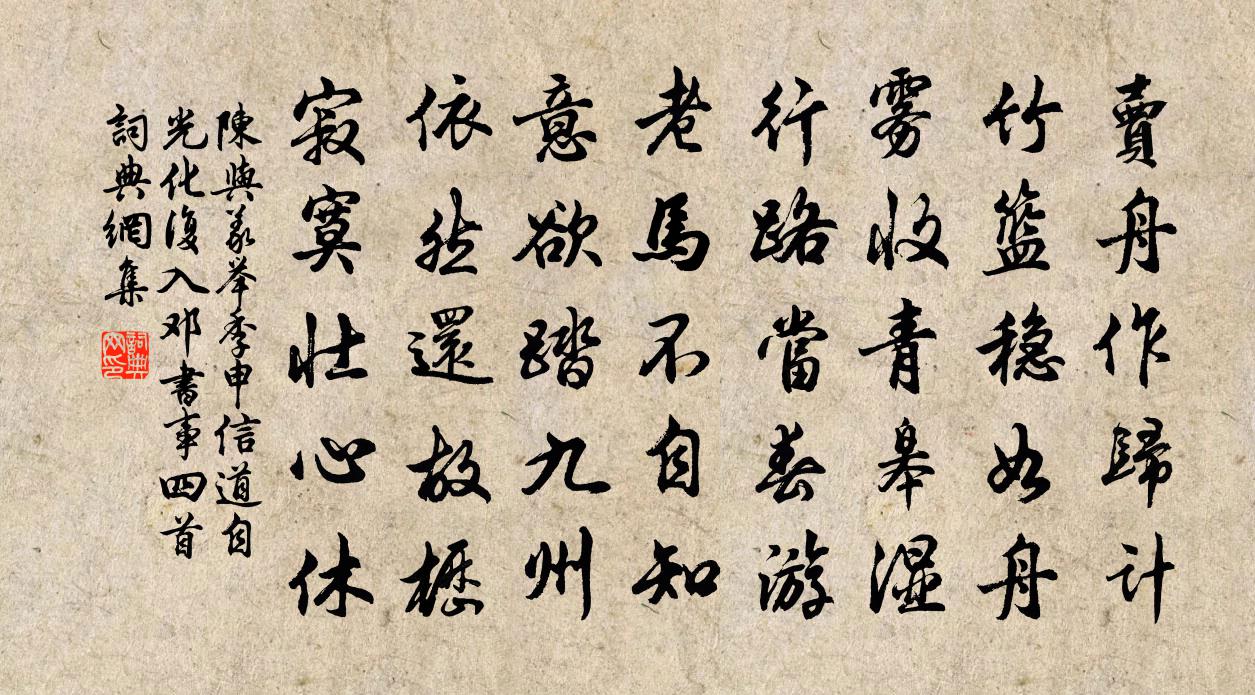 賣舟作歸計
竹籃穩如舟
雾收青皋濕
行路當春游
老馬不自知
意欲踏九州
依然還故櫪
寂寞壯心休
陳與義举季申信道自
光化復入邓書事四首
詞典網集
詞典网印